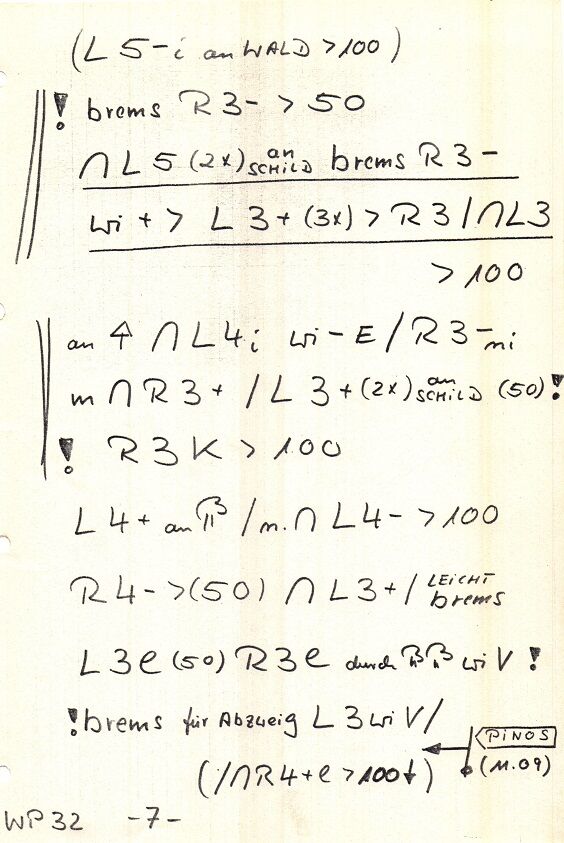 (L 5-i an WALD > 100)
! brems R 3- > 50
∩ L 5 (2x) an SCHILD brems R 3-
wi + > L 3+ (3x) > R 3 / ∩ L3
> 100
an ⇑ ∩ L4i wi - E / R 3- ni
m ∩ R3+ / L 3+ (2x) an SCHILD (50) !
! R 3 K > 100
L 4+ an / m. ∩ L4- > 100
R 4- > (50) ∩ L3+ / LEICHT brems
L3e (50) R3e durch wi V !
! brems für Abzweig L3 wi V /
PINOS
(/∩R4+e > 100↓) (11.09)
WP 32 -7-